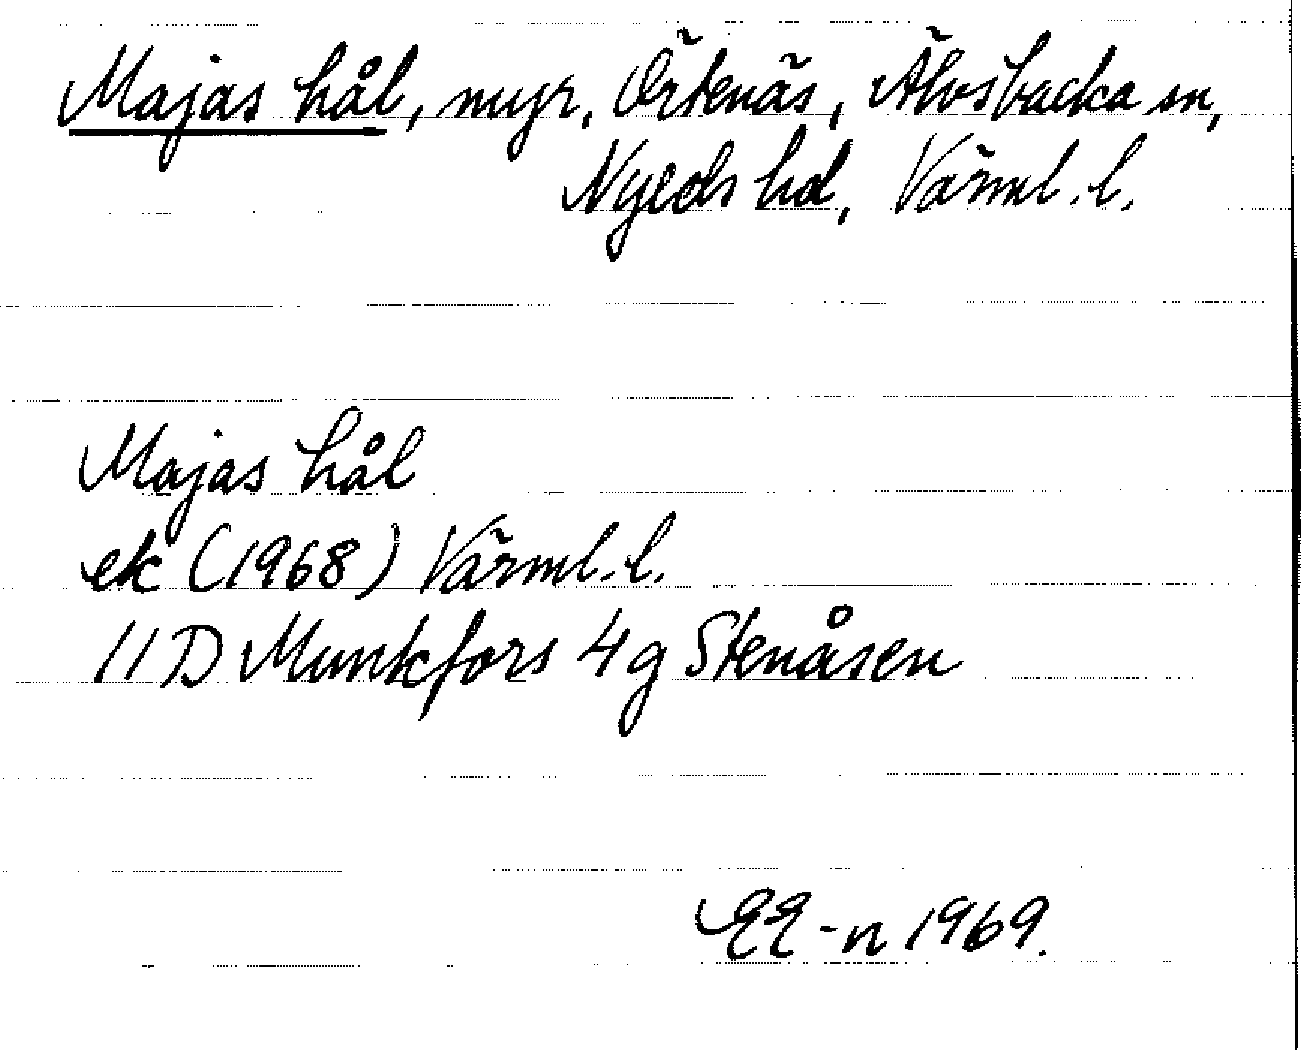 Majas hål, myr, Örtenäs, Älvsbacka sn,
Nyeds hd, Värml. l.
Majas hål
ek (1968) Värml. l.
11 D Munkfors 4 g Stenåsen
EE-n 1969.